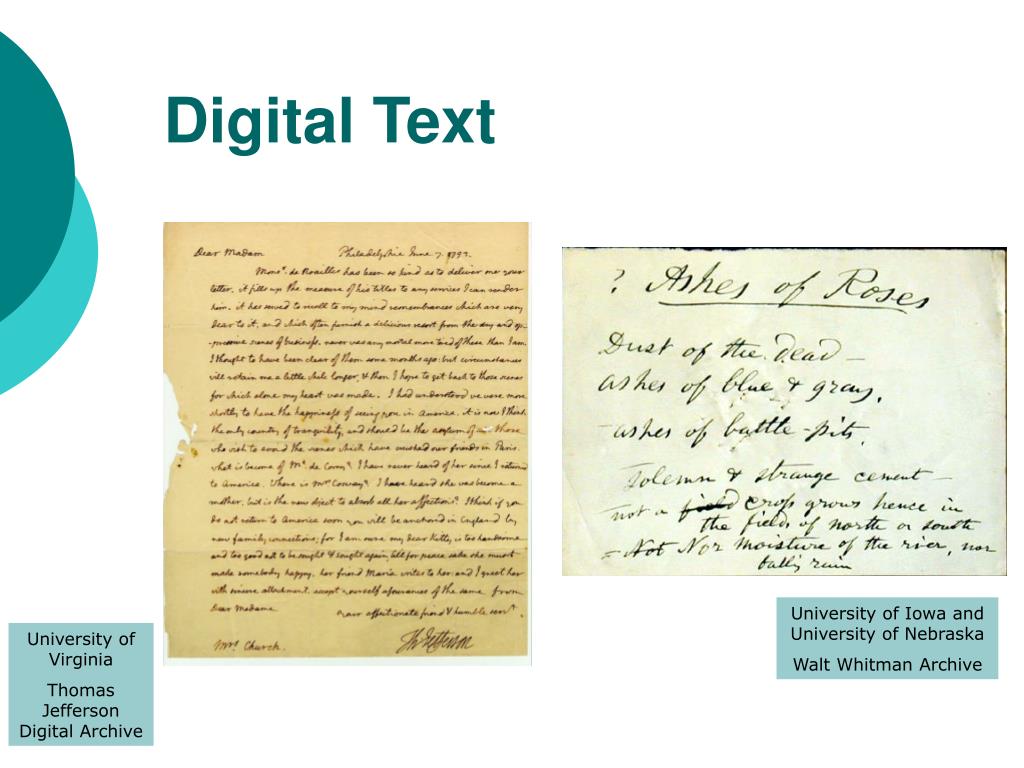 Digital Text
Dear Madam Philadelphia June 7. 1793.
Mons^r. de Noailles has been so kind as to deliver me your
letter. it fills up the measure of his titles to any services I can render
him. it has served to recall to my mind remembrances which are very
dear to it, and which often furnish a delicious resort from the dry and op-
-pressive scenes of business. never was any mortal more tired of these than I am.
I thought to have been clear of them some months ago: but circumstances
will retain me a little while longer, & then I hope to get back to those scenes
for which alone my heart was made. I had understood we were more
shortly to have the happiness of seeing you in America. it is now I think
the only country of tranquility, and should be the asylum of all those
who wish to avoid the scenes which have crushed our friends in Paris.
what is become of M^e. de Corny? I have never heard of her since I returned
to America. Where is M^r Conway? I have heard she was become a
mother, but is the new object to absorb all her affections? I think if you
do not return to America soon you will be anchored in England by
new family connections; for I am sure my dear Kitty is too handsome
and too good not to be sought & sought again, till for peace sake she must
make somebody happy. her friend Maria writes to her: and I greet her
with sincere attachment. accept yourself assurances of the same from
Dear Madame your affectionate friend & humble serv^t.
Mrs. Church. Th Jefferson
? Ashes of Roses
Dust of the dead –
ashes of blue & gray,
ashes of battle-pits,
Solemn & strange cement –
not a field crop grows hence in
the fields of north or south
– Not Nor moisture of the river, nor
falling rain
University of
Virginia
Thomas
Jefferson
Digital Archive
University of Iowa and
University of Nebraska
Walt Whitman Archive